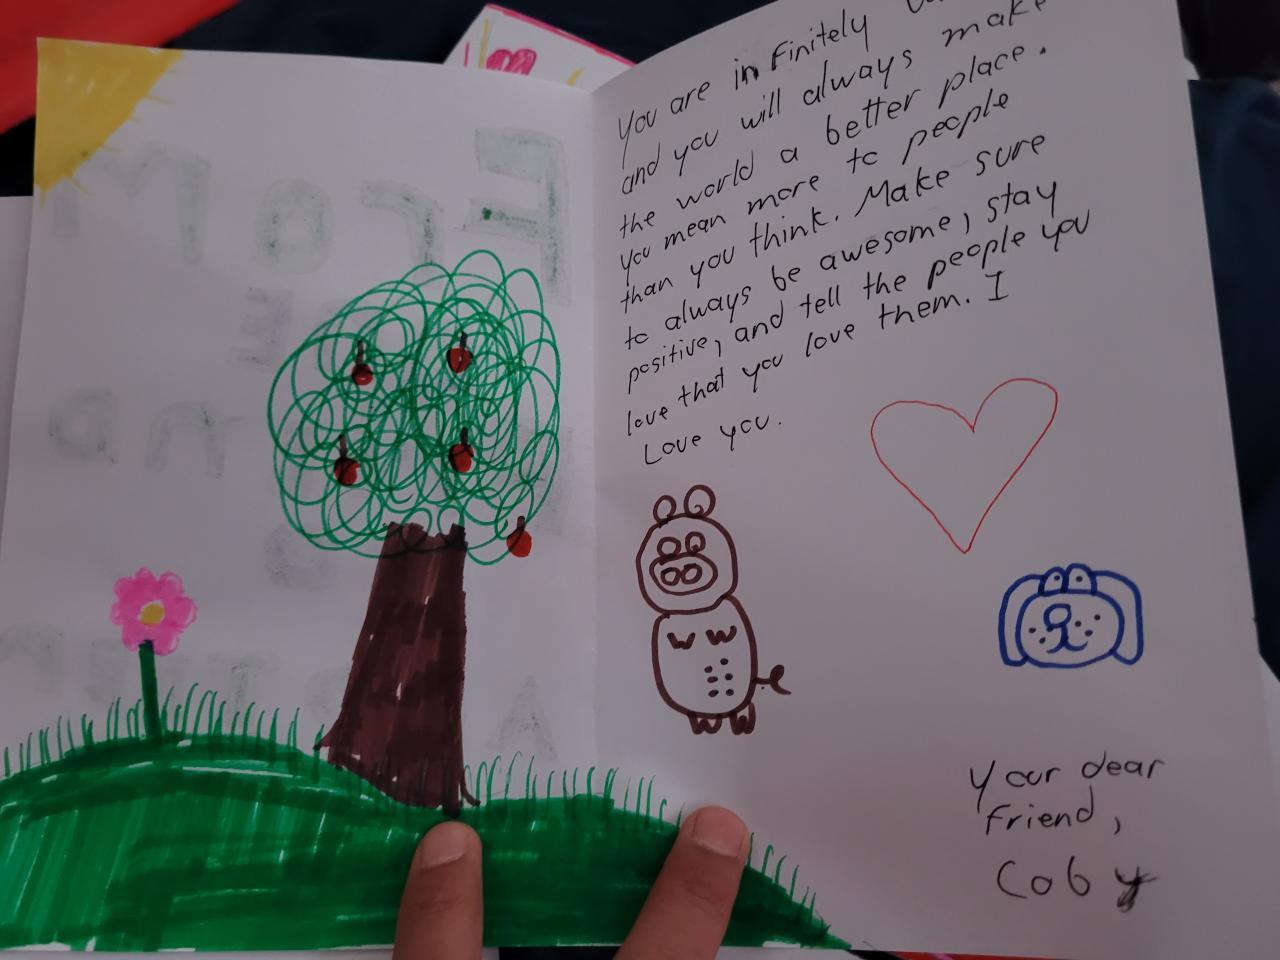 You are infinitely
and you will always make
the world a better place.
you mean more to people
than you think. Make sure
to always be awesome, stay
positive, and tell the people you
love that you love them. I
Love you.
Your dear
friend,
Coby
From